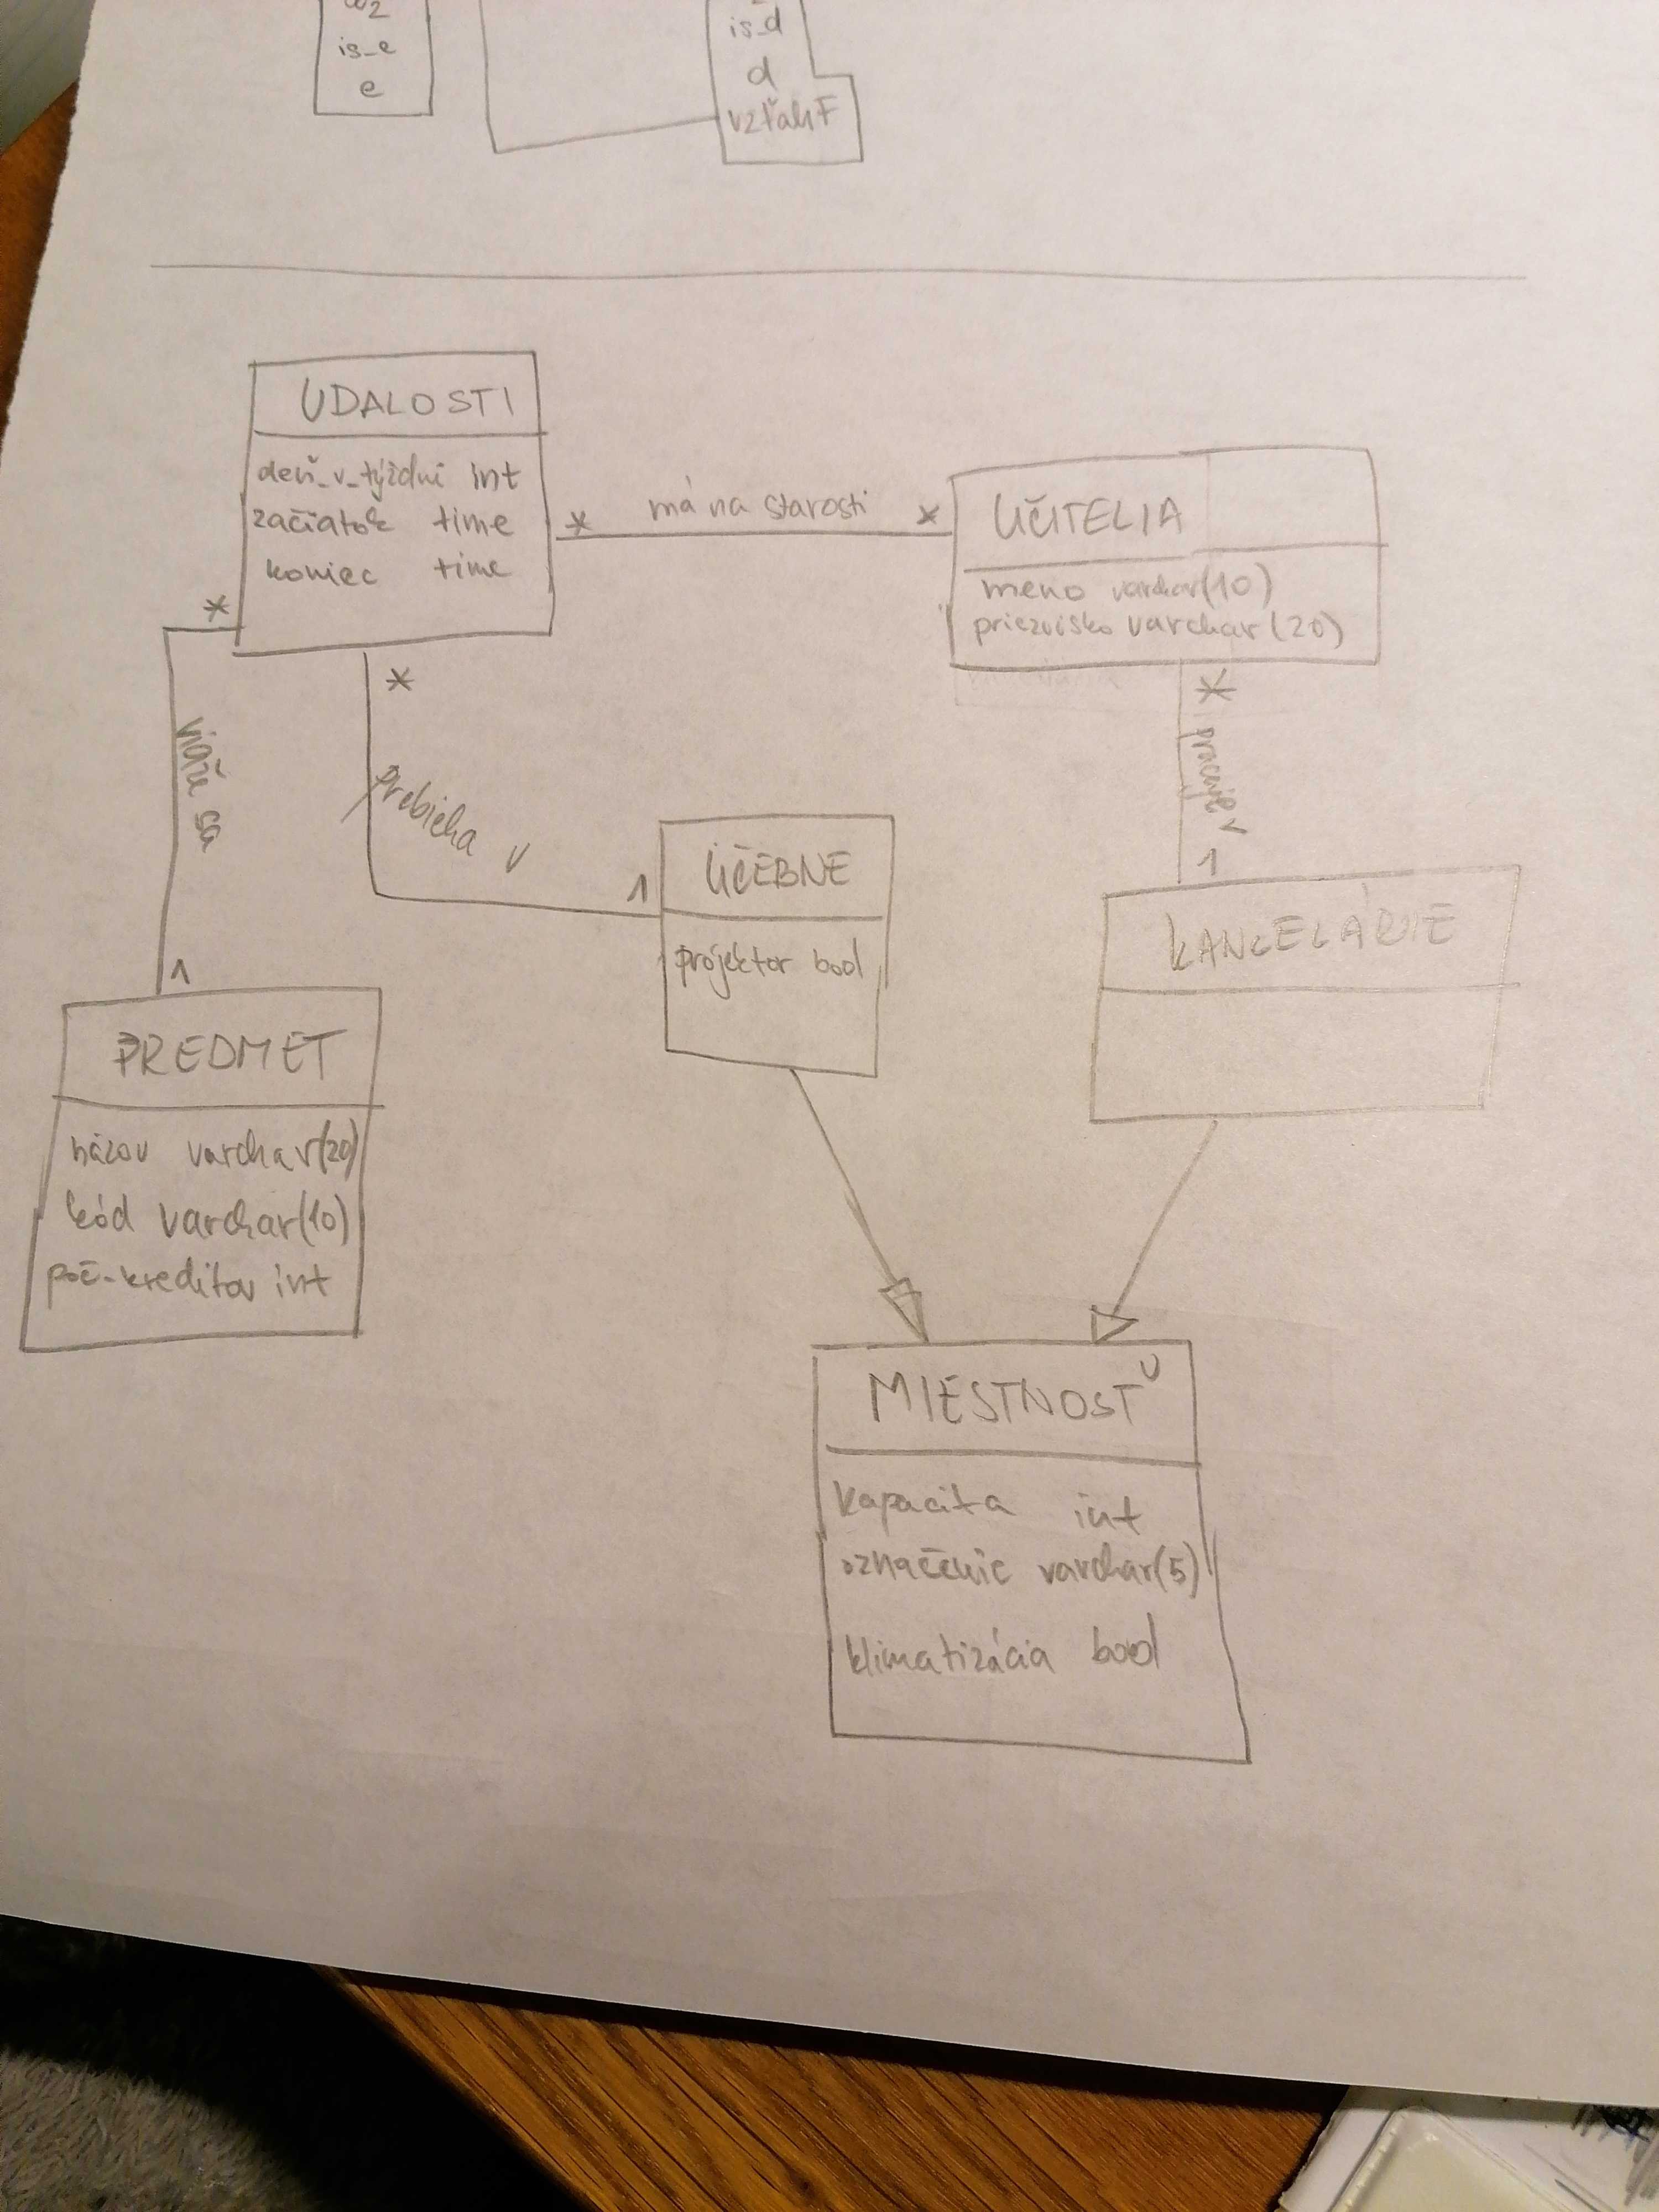 is_e
e
is_d
d
vzťah F
UDALOSTI
deň_v_týždni int
začiatok time
koniec time
* má na starosti *
UČITELIA
meno varchar(10)
priezvisko varchar(20)
*
viaže sa
1
*
prebieha v
1
*
pracuje v
1
UČEBNE
projektor bool
KANCELÁRIE
PREDMET
názov varchar(20)
kód varchar(10)
poč_kreditov int
MIESTNOSŤ
kapacita int
označenie varchar(5)
klimatizácia bool